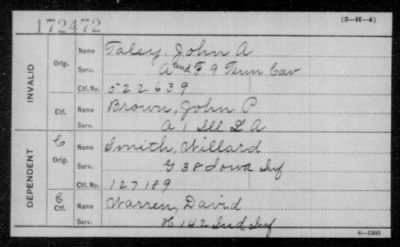 172472
(3—H—4)
INVALID
Orig.
Name Taley, John A
Serv. A and F 9 Tenn Cav
Ctf. No. 522639
Ctf.
Name Brown, John P
Serv. A 1 Ill L A
DEPENDENT
C
Orig.
Name Smith, Willard
Serv. G 38 Iowa Inf
Ctf. No. 127189
C
Ctf.
Name Warren, David
Serv. H 142 Ind Inf